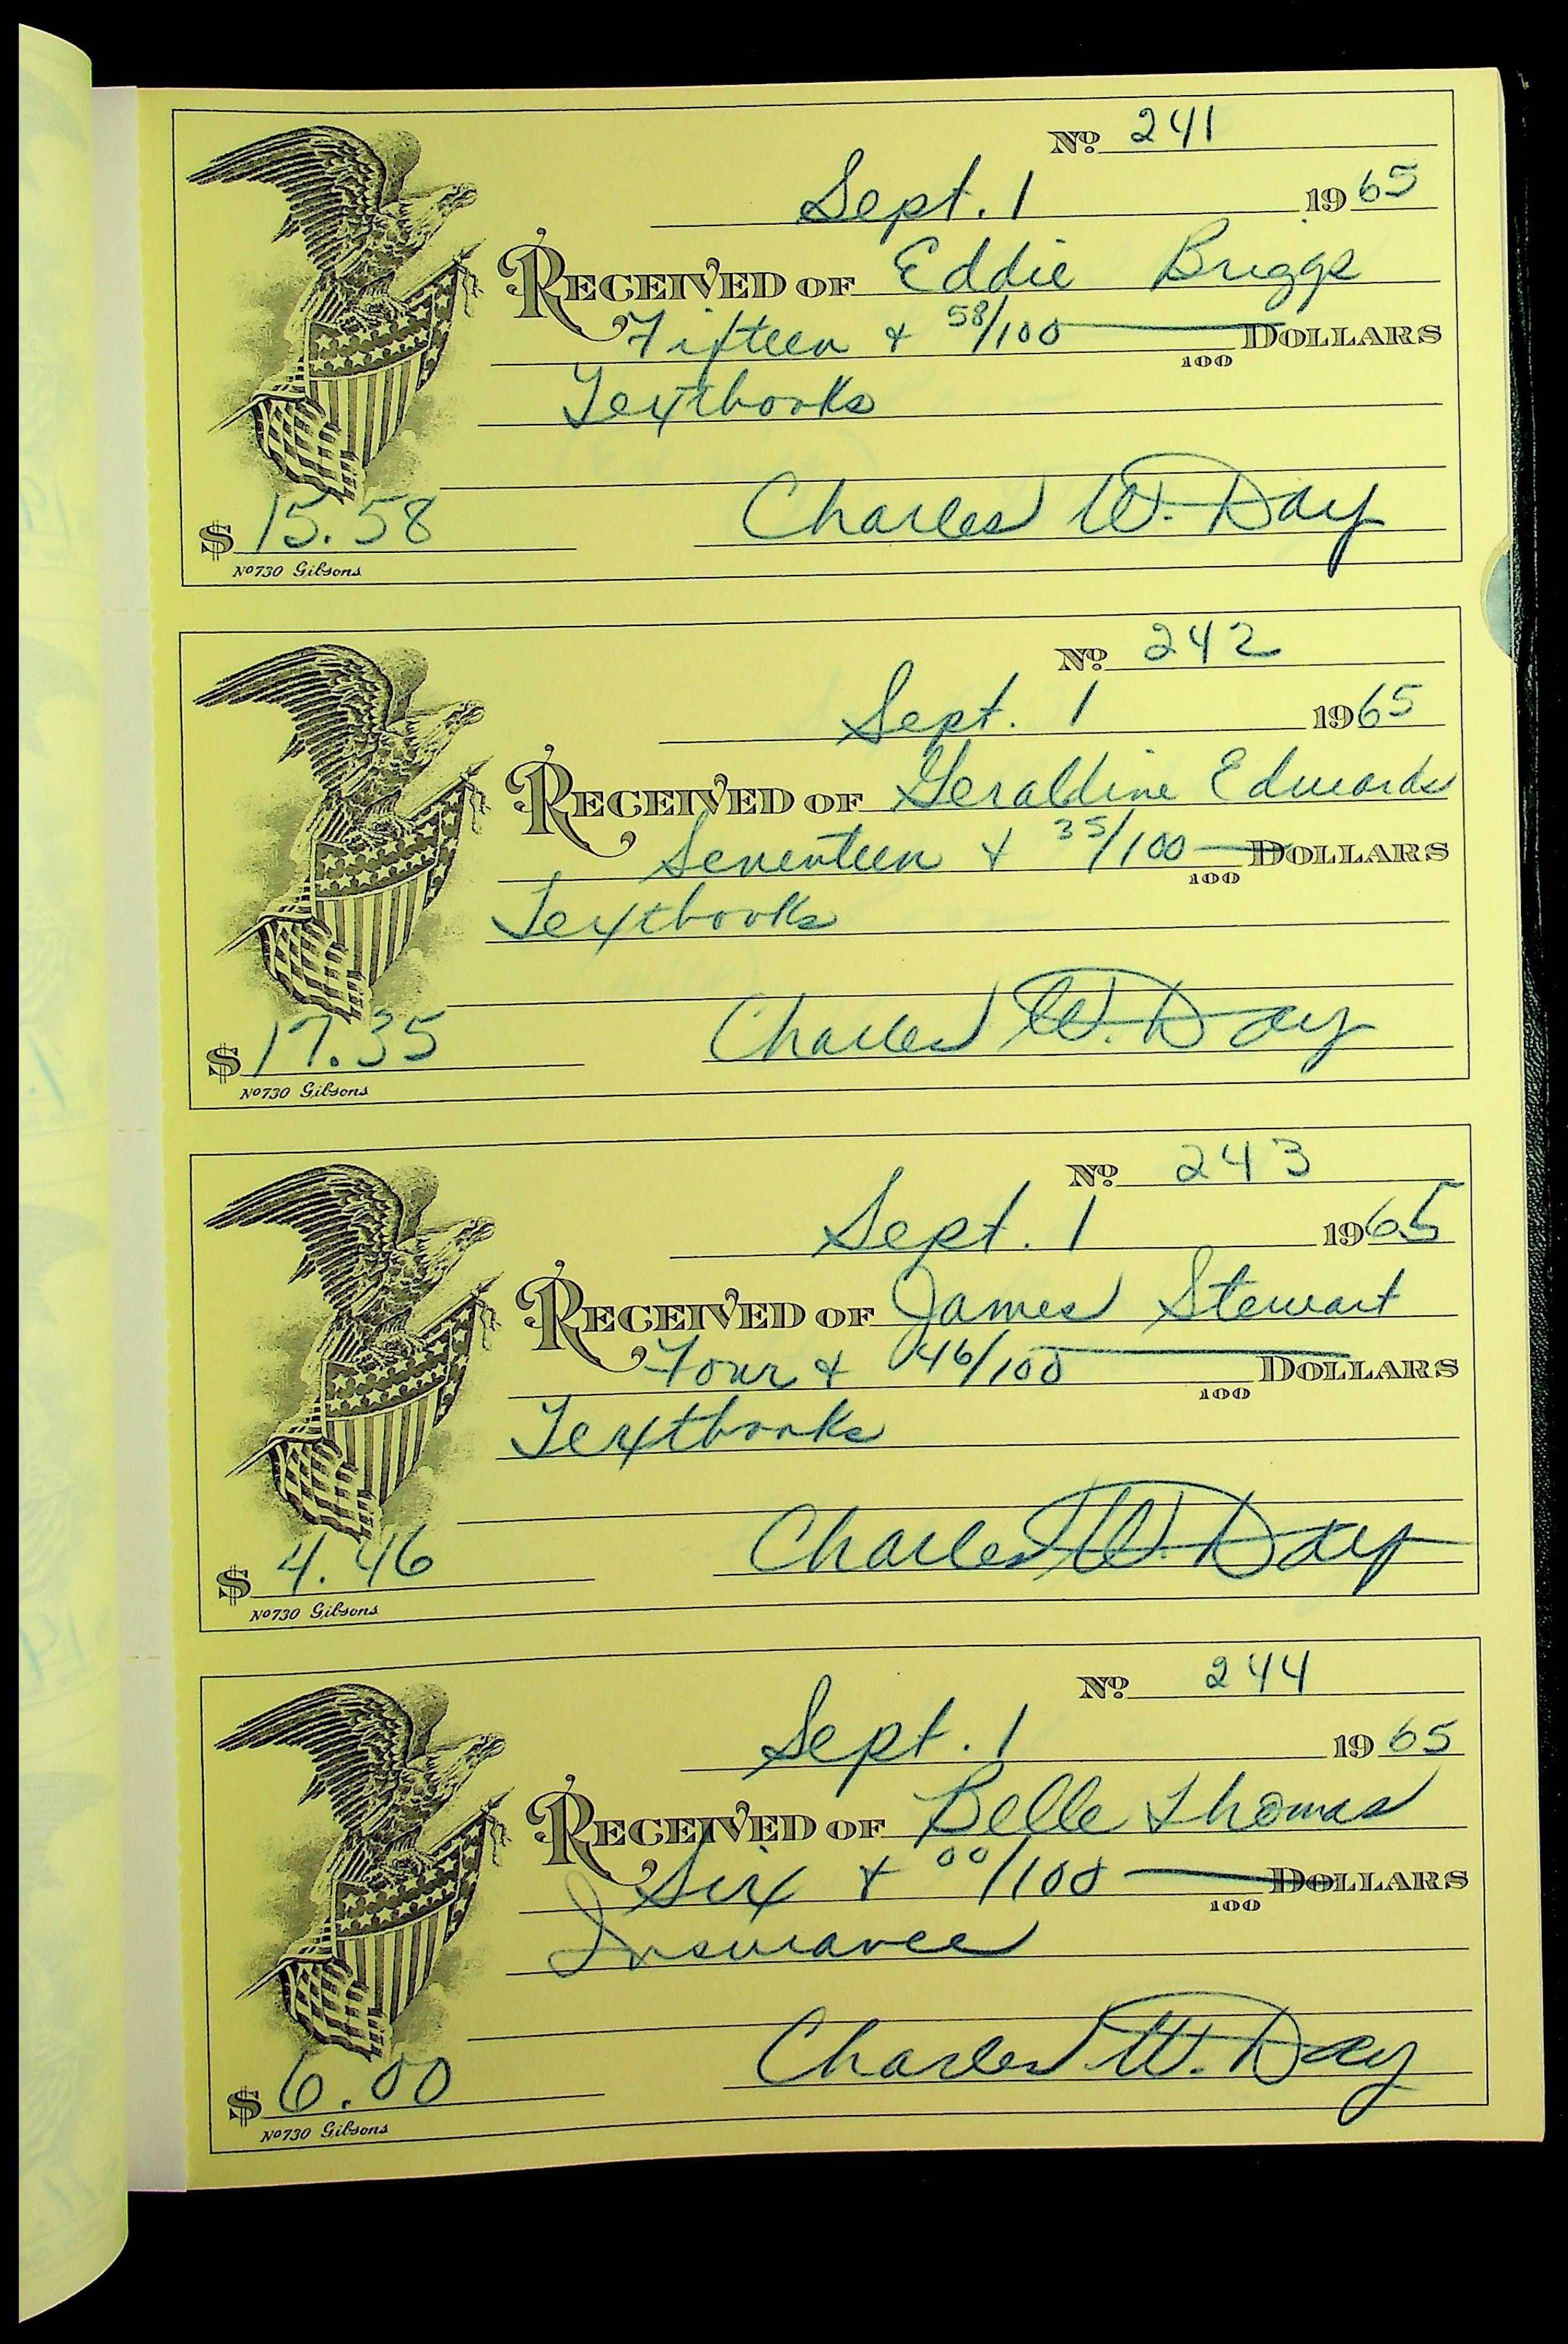 No 241
Sept. 1 1965
RECEIVED OF Eddie Briggs
Fifteen & 58/100 DOLLARS
100
Textbooks
Charles W. Day
$ 15.58
No 730 Gibsons
No 242
Sept. 1 1965
RECEIVED OF Geraldine Edwards
Seventeen & 35/100 DOLLARS
100
Textbooks
Charles W. Day
$ 17.35
No 730 Gibsons
No 243
Sept. 1 1965
RECEIVED OF James Stewart
Four & 46/100 DOLLARS
100
Textbooks
Charles W. Day
$ 4.46
No 730 Gibsons
No 244
Sept. 1 1965
RECEIVED OF Belle Thomas
Six & 00/100 DOLLARS
100
Insurance
Charles W. Day
$ 6.00
No 730 Gibsons